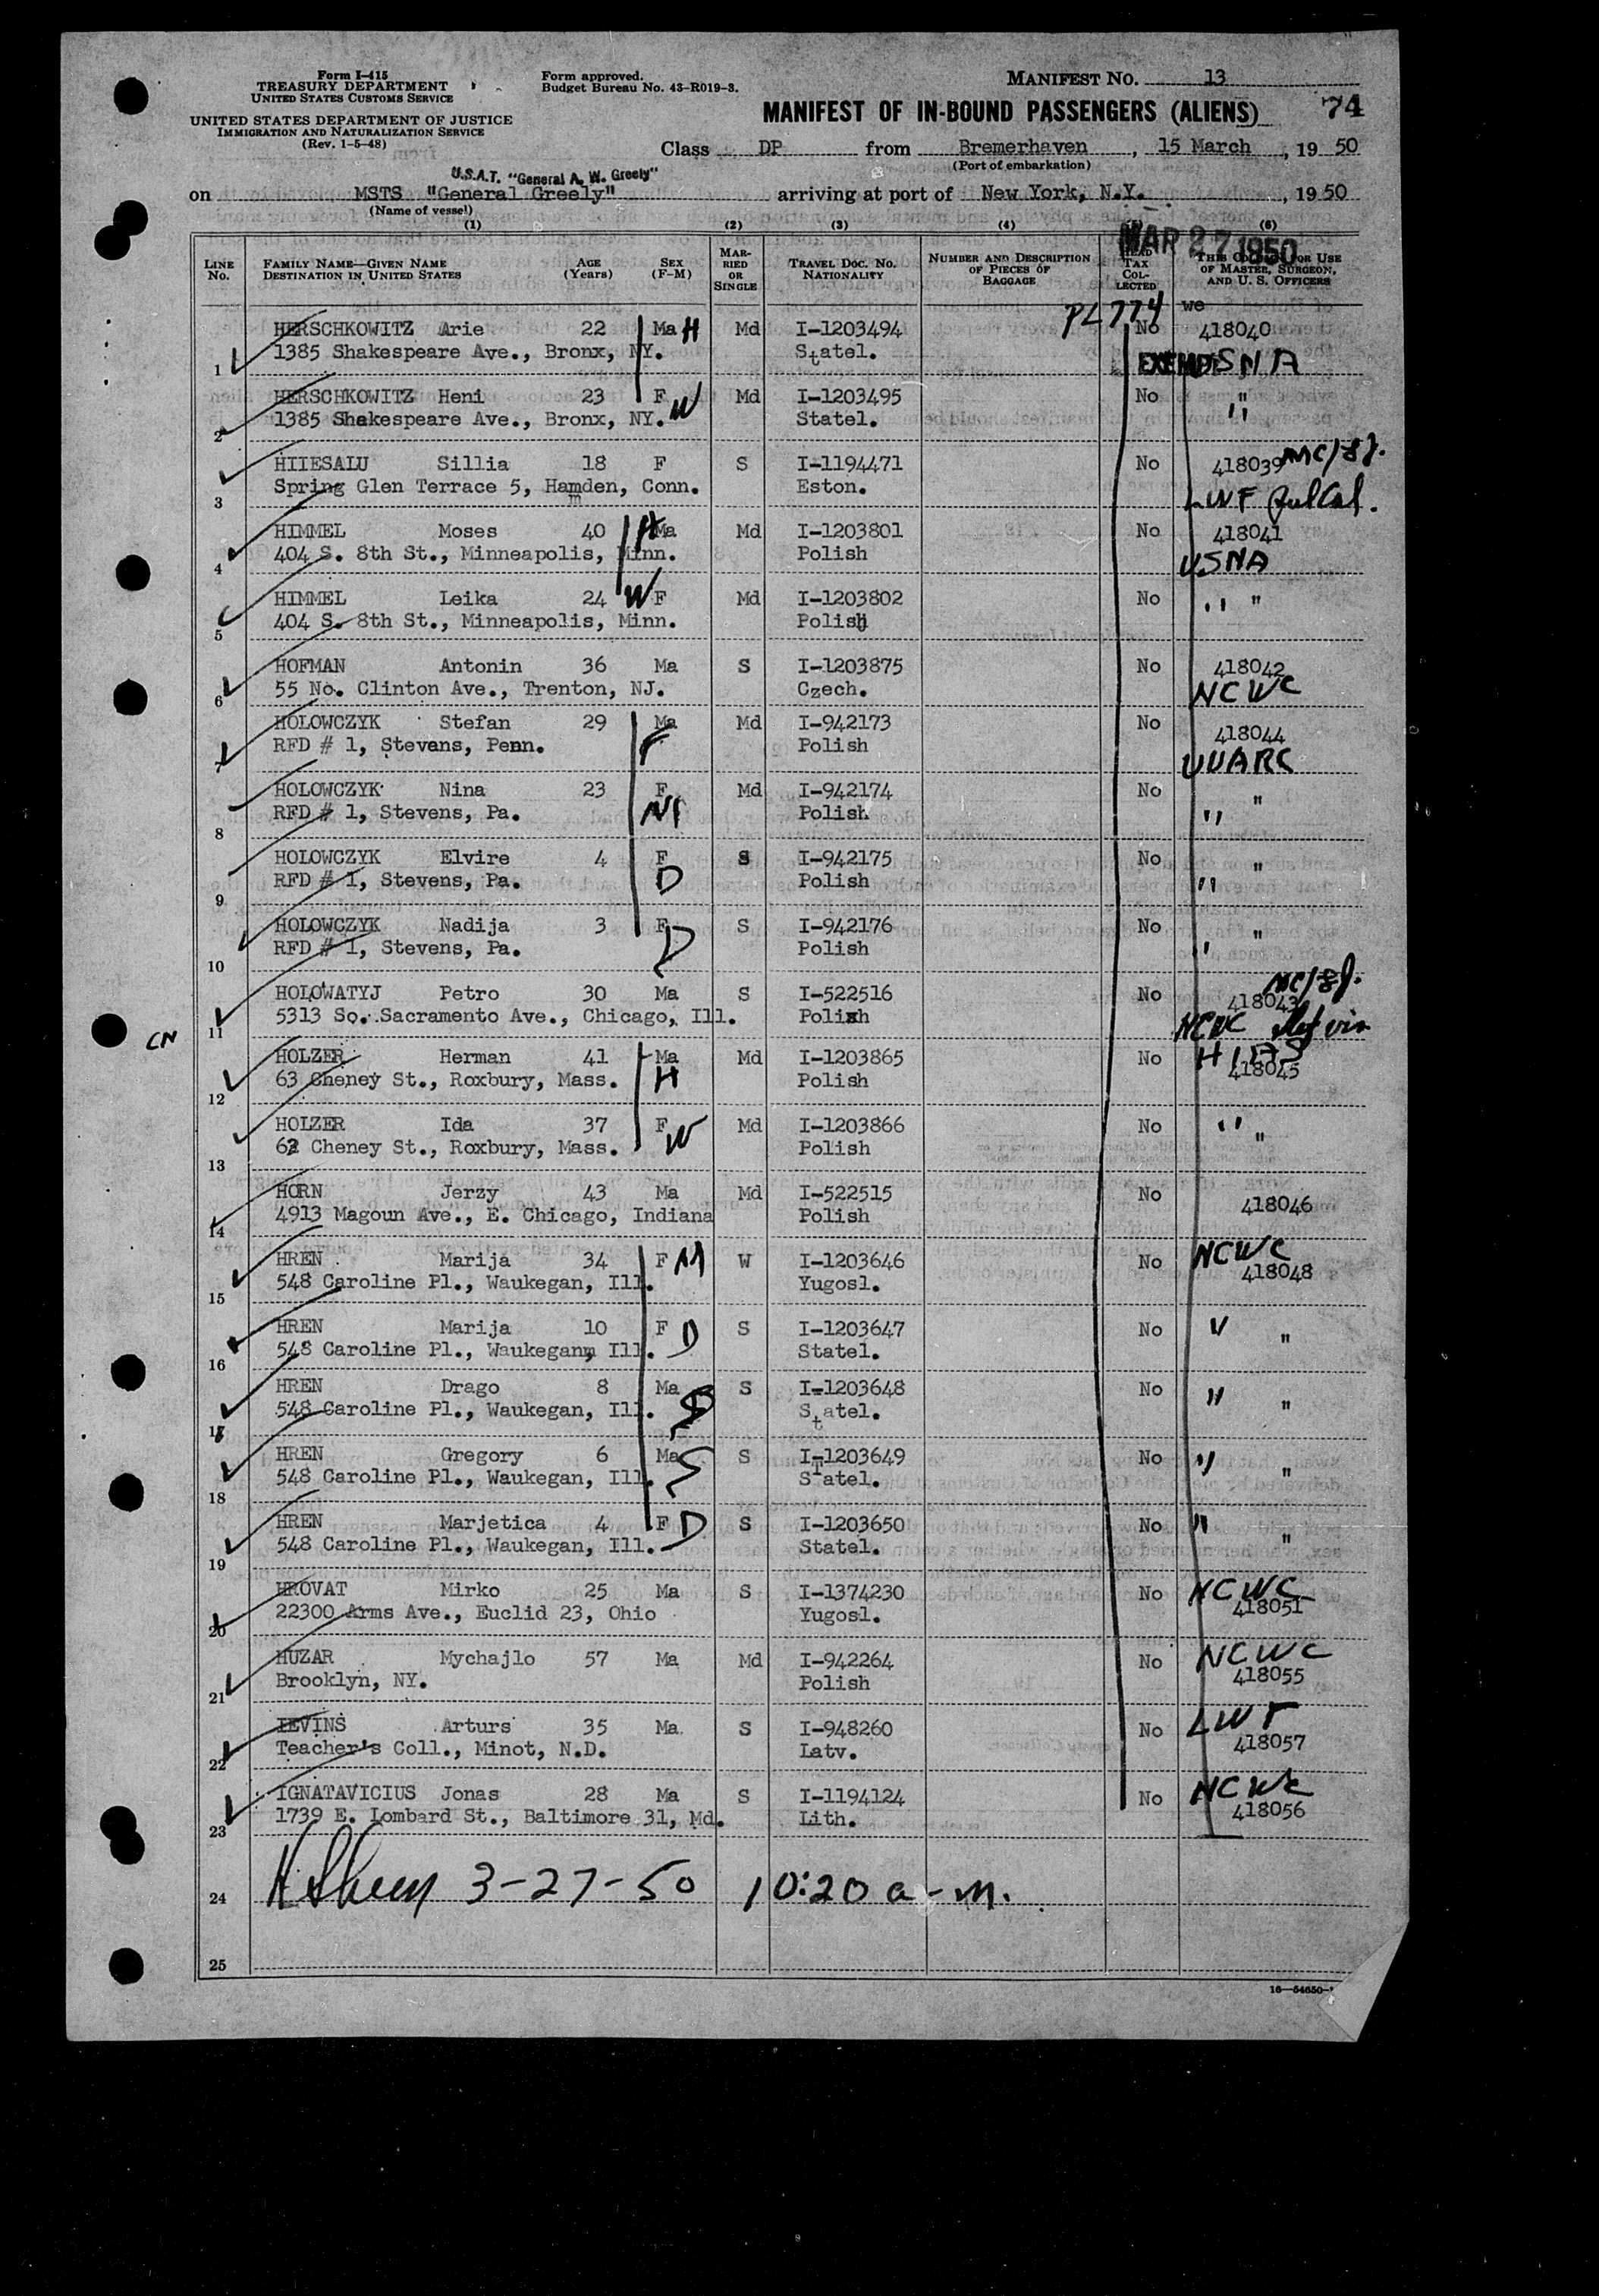 Form I-415
TREASURY DEPARTMENT
UNITED STATES CUSTOMS SERVICE
UNITED STATES DEPARTMENT OF JUSTICE
IMMIGRATION AND NATURALIZATION SERVICE
(Rev. 1-5-48)
Form approved.
Budget Bureau No. 43-R019-3.
MANIFEST NO. 13
MANIFEST OF IN-BOUND PASSENGERS (ALIENS) 74
Class DP from Bremerhaven, 15 March, 19 50
(Port of embarkation)
U.S.A.T. "General A. W. Greely"
on MSTS "General Greely" arriving at port of New York, N.Y., 1950
(Name of vessel)
(1) (2) (3) (4) (6)
MAR 27 1950
LINE No. FAMILY NAME—GIVEN NAME DESTINATION IN UNITED STATES AGE (Years) SEX (F-M) MARRIED OR SINGLE TRAVEL DOC. NO. NATIONALITY NUMBER AND DESCRIPTION OF PIECES OF BAGGAGE HEAD TAX COLLECTED THIS COLUMN FOR USE OF MASTER, SURGEON, AND U. S. OFFICERS
PL 774 we
HERSCHKOWITZ Arie 22 Ma H Md I-1203494 No 418040
1 1385 Shakespeare Ave., Bronx, NY. Statel. EXEMPT USNA
HERSCHKOWITZ Heni 23 F W Md I-1203495 No "
2 1385 Shakespeare Ave., Bronx, NY. Statel. "
HIIESALU Sillia 18 F S I-1194471 No 418039
3 Spring Glen Terrace 5, Hamden, Conn. Eston. LWF
HIMMEL Moses 40 H Ma Md I-1203801 No 418041
4 404 S. 8th St., Minneapolis, Minn. Polish USNA
HIMMEL Leika 24 W F Md I-1203802 No " "
5 404 S. 8th St., Minneapolis, Minn. Polish
HOFMAN Antonin 36 Ma S I-1203875 No 418042
6 55 No. Clinton Ave., Trenton, NJ. Czech. NCWC
HOLOWCZYK Stefan 29 Ma Md I-942173 No 418044
7 RFD # 1, Stevens, Penn. F Polish UUARC
HOLOWCZYK Nina 23 F Md I-942174 No "
8 RFD # 1, Stevens, Pa. M Polish "
HOLOWCZYK Elvire 4 F S I-942175 No "
9 RFD # 1, Stevens, Pa. D Polish "
HOLOWCZYK Nadija 3 F S I-942176 No "
10 RFD # 1, Stevens, Pa. D Polish
HOLOWATYJ Petro 30 Ma S I-522516 No 418043
CN 11 5313 So. Sacramento Ave., Chicago, Ill. Polish NCWC
HOLZER Herman 41 Ma Md I-1203865 No HIAS
12 63 Cheney St., Roxbury, Mass. H Polish 418045
HOLZER Ida 37 F W Md I-1203866 No "
13 62 Cheney St., Roxbury, Mass. Polish "
HORN Jerzy 43 Ma Md I-522515 No 418046
14 4913 Magoun Ave., E. Chicago, Indiana Polish
HREN Marija 34 F M W I-1203646 No NCWC
15 548 Caroline Pl., Waukegan, Ill. Yugosl. 418048
HREN Marija 10 F D S I-1203647 No " "
16 548 Caroline Pl., Waukegan, Ill. Statel.
HREN Drago 8 Ma S S I-1203648 No " "
17 548 Caroline Pl., Waukegan, Ill. Statel.
HREN Gregory 6 Ma S S I-1203649 No " "
18 548 Caroline Pl., Waukegan, Ill. Statel.
HREN Marjetica 4 F D S I-1203650 No " "
19 548 Caroline Pl., Waukegan, Ill. Statel.
HROVAT Mirko 25 Ma S I-1374230 No NCWC
20 22300 Arms Ave., Euclid 23, Ohio Yugosl. 418051
HUZAR Mychajlo 57 Ma Md I-942264 No NCWC
21 Brooklyn, NY. Polish 418055
IEVINS Arturs 35 Ma. S I-948260 No LWF
22 Teacher's Coll., Minot, N.D. Latv. 418057
IGNATAVICIUS Jonas 28 Ma S I-1194124 No NCWC
23 1739 E. Lombard St., Baltimore 31, Md. Lith. 418056
24 3-27-50 10:20 a.m.
25